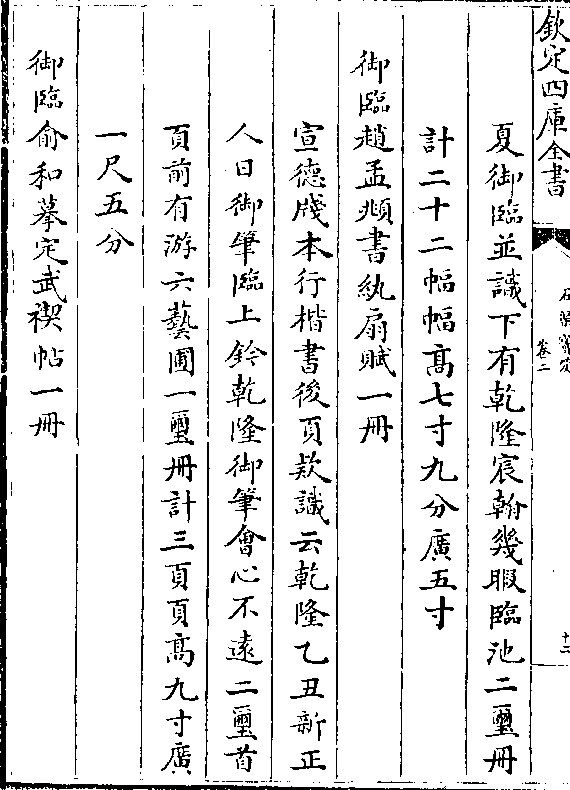 欽定四庫全書
石渠寶笈
卷二
十二
夏御臨並識下有乾隆宸翰幾暇臨池二璽冊
計二十二幅幅髙七寸九分廣五寸
御臨趙孟頫書紈扇賦一冊
宣德牋本行楷書後頁欵識云乾隆乙丑新正
人日御筆臨上鈐乾隆御筆會心不逺二璽首
頁前有游六藝圃一璽冊計三頁頁髙九寸廣
一尺五分
御臨俞和摹定武禊帖一冊